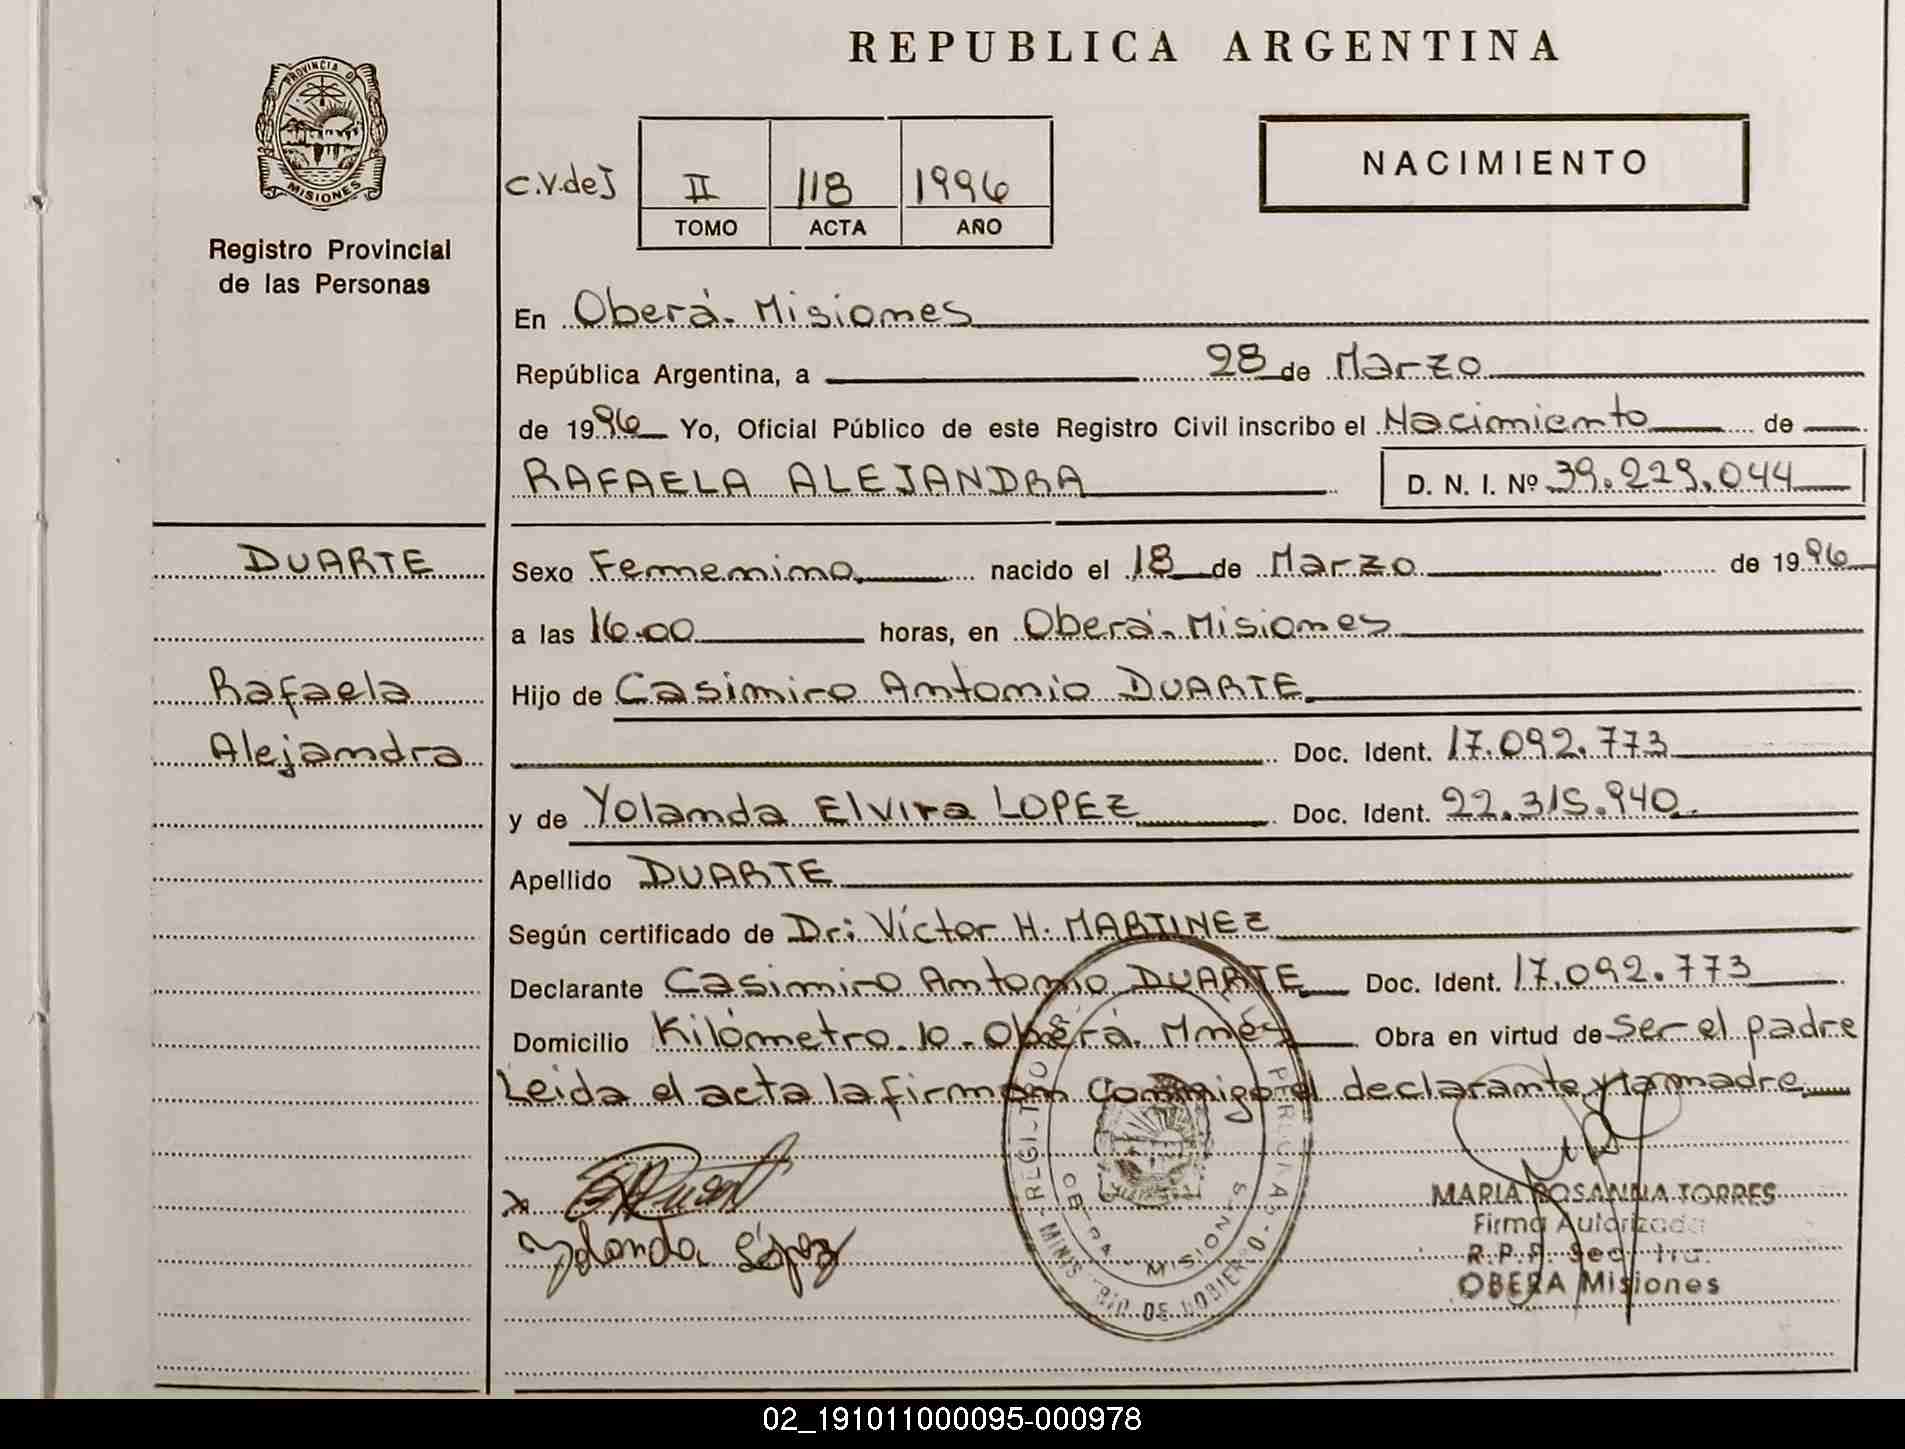 REPUBLICA ARGENTINA
PROVINCIA D
MISIONES
Registro Provincial
de las Personas
C.V.deJ
II 118 1996
TOMO ACTA AÑO
NACIMIENTO
En Oberá-Misiones
República Argentina, a 28 de Marzo
de 1996 Yo, Oficial Público de este Registro Civil inscribo el Nacimiento de
RAFAELA ALEJANDRA D. N. I. Nº 39.229.044
DUARTE
Rafaela
Alejandra
Sexo Femenino nacido el 18 de Marzo de 1996
a las 16.00 horas, en Oberá-Misiones
Hijo de Casimiro Antonio DUARTE
Doc. Ident. 17.092.773
y de Yolanda Elvira LOPEZ Doc. Ident. 22.315.940.
Apellido DUARTE
Según certificado de Dr: Víctor H. MARTINEZ
Declarante Casimiro Antonio DUARTE Doc. Ident. 17.092.773
Domicilio Kilómetro 10-Oberá. Mnes Obra en virtud de ser el padre
Leida el acta la firman conmigo el declarante y la madre
x
Yolanda López
OBERA MISIONES
MARIA ROSANNA TORRES
Firma Autorizada
R.P.P. Sec 1ra.
OBERA Misiones
02_191011000095-000978